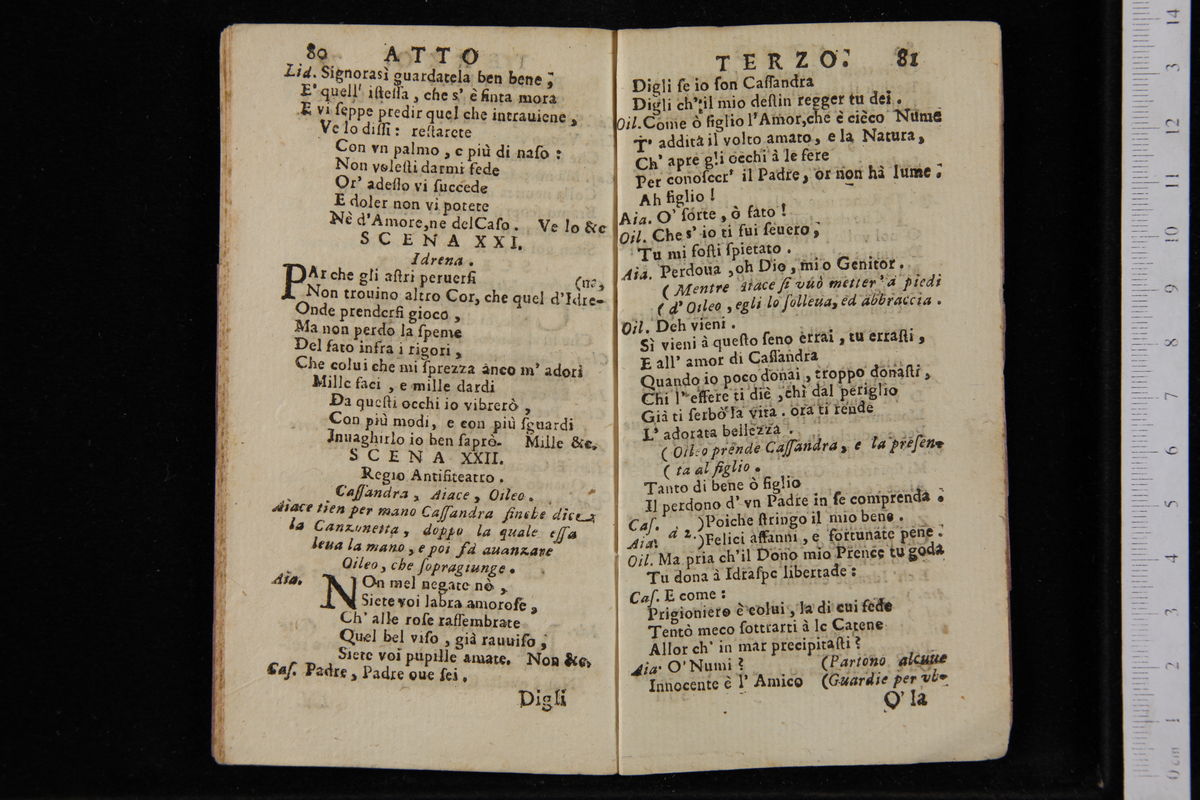 80 ATTO
Lid. Signorasì guardatela ben bene;
E' quell' iſteſſa, che s' è finta mora
E vi ſeppe predir quel che intrauiene,
Ve lo diſſi: reſtarete
Con vn palmo, e più di naſo:
Non voleſti darmi fede
Or' adeſſo vi ſuccede
E doler non vi potete
Nè d'Amore, ne del Caſo. Ve lo &c
SCENA XXI.
Idrena.
PAr che gli aſtri peruerſi (na,
Non trouino altro Cor, che quel d'Idre-
Onde prenderſi gioco,
Ma non perdo la ſpeme
Del fato infra i rigori,
Che colui che mi ſprezza anco m' adori
Mille faci, e mille dardi
Da queſti occhi io vibrerò,
Con più modi, e con più ſguardi
Inuaghirlo io ben ſaprò. Mille &c.
SCENA XXII.
Regio Antifiteatro.
Caſſandra, Aiace, Oileo.
Aiace tien per mano Caſſandra finche dice
la Canzonetta, doppo la quale eſſa
leua la mano, e poi fà auanzare
Oileo, che ſopragiunge.
Aia. NOn mel negate nò,
Siete voi labra amoroſe,
Ch' alle roſe raſſembrate
Quel bel viſo, già rauuiſo,
Siete voi pupille amate. Non &c.
Caſ. Padre, Padre oue ſei.
Digli
TERZO. 81
Digli ſe io ſon Caſſandra
Digli ch' il mio deſtin regger tu dei.
Oil. Come ò figlio l'Amor, che è cieco Nume
T' addita il volto amato, e la Natura,
Ch' apre gli occhi à le fere
Per conoſcer' il Padre, or non hà lume;
Ah figlio!
Aia. O' ſorte, ò fato!
Oil. Che s' io ti fui ſeuero,
Tu mi foſti ſpietato.
Aia. Perdoua, oh Dio, mio Genitor.
(Mentre Aiace ſi vuò metter' a piedi
(d' Oileo, egli lo ſolleua, ed abbraccia.
Oil. Deh vieni.
Sì vieni à queſto ſeno errai, tu errаſti,
E all' amor di Caſſandra
Quando io poco donai, troppo donaſti,
Chi l' eſſere ti diè, chi dal periglio
Già ti ſerbò la vita. ora ti rende
L' adorata bellezza.
(Oileo prende Caſſandra, e la preſen-
(ta al figlio.
Tanto di bene ò figlio
Il perdono d' vn Padre in ſe comprenda.
Caſ. à 2. )Poiche ſtringo il mio bene.
Aia. )Felici affanni, e fortunate pene.
Oil. Ma pria ch'il Dono mio Prence tu goda
Tu dona à Idraſpe libertade:
Caſ. E come:
Prigioniero è colui, la di cui fede
Tentò meco ſottrarti à le Catene
Allor ch' in mar precipitaſti?
Aia. O' Numi? (Partono alcune
Innocente è l' Amico (Guardie per vb-
O' la
0 cm 1 2 3 4 5 6 7 8 9 10 11 12 3 14